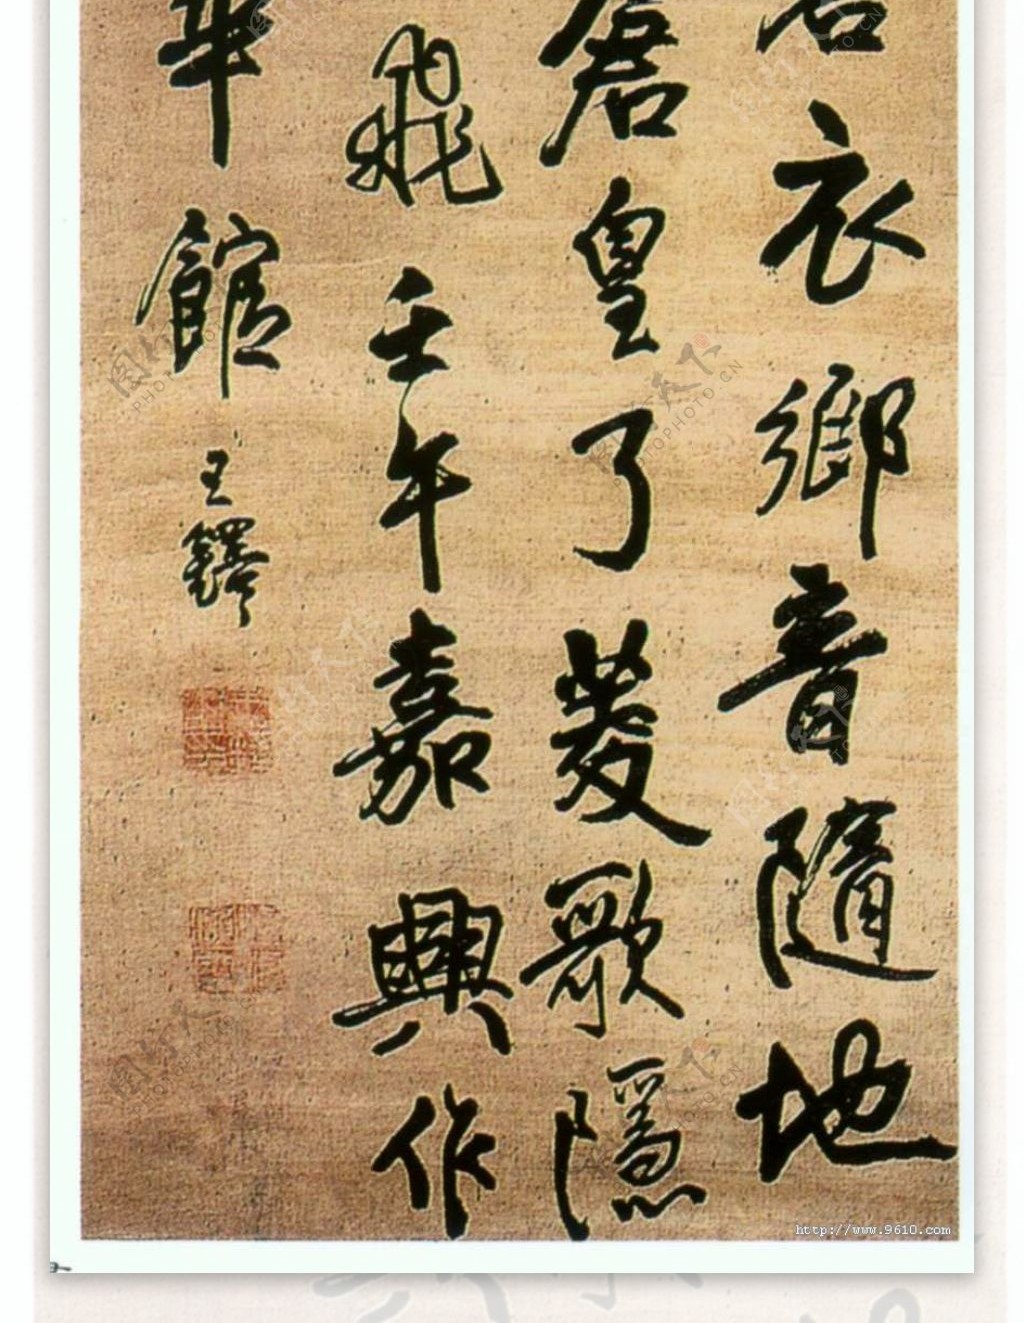 衣鄉音隨地
倉皇了菱歌隱
飛壬午嘉興作
華館
王鐸
http://www.9610.com